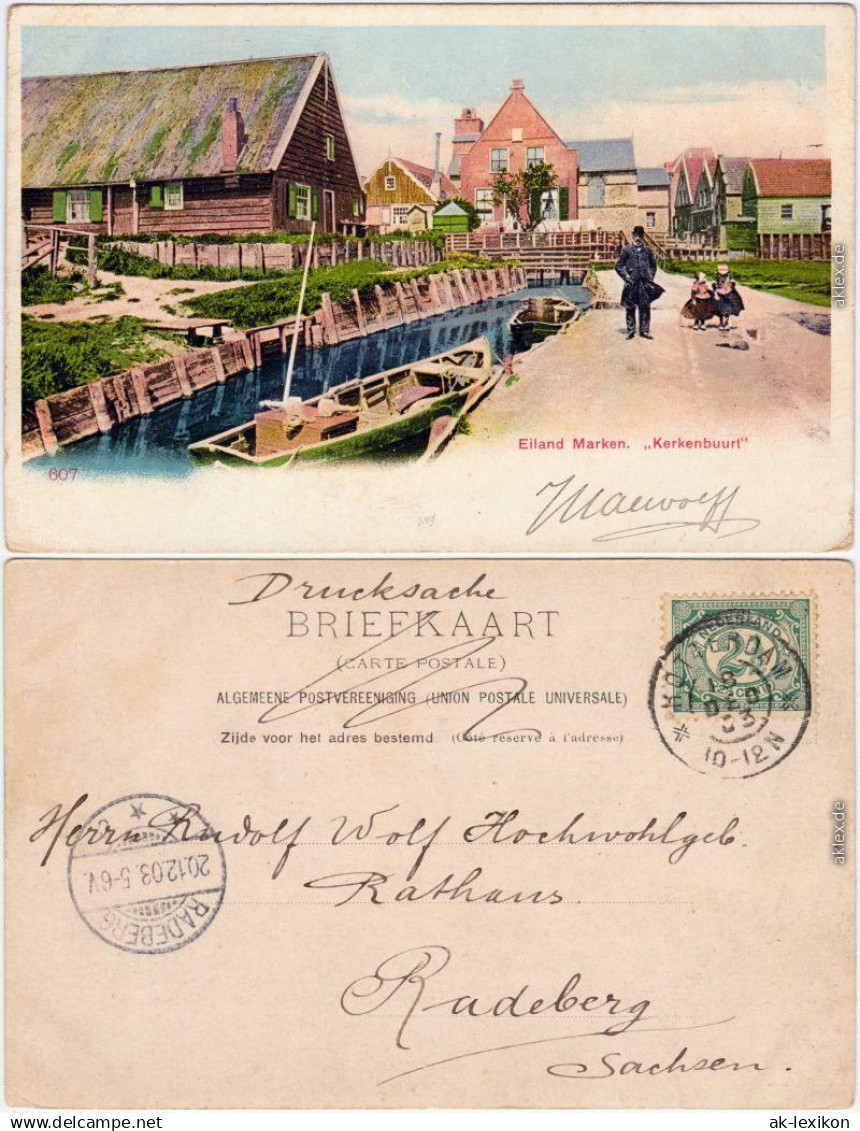 Eiland Marken. „Kerkenbuurt"
607
Drucksache
BRIEFKAART
(CARTE POSTALE)
ALGEMEENE POSTVEREENIGING (UNION POSTALE UNIVERSALE)
Zijde voor het adres bestemd (Côté réservé à l'adresse)
NEDERLAND
CENT
ROTTERDAM
18 DEC 03
10-12 N
Herrn Rudolf Wolf Hochwohlgeb.
Rathaus
RADEBERG
20.12.03. 5-6V.
Radeberg
Sachsen.
aklex.de
aklex.de
www.aklex.de
ak-lexikon